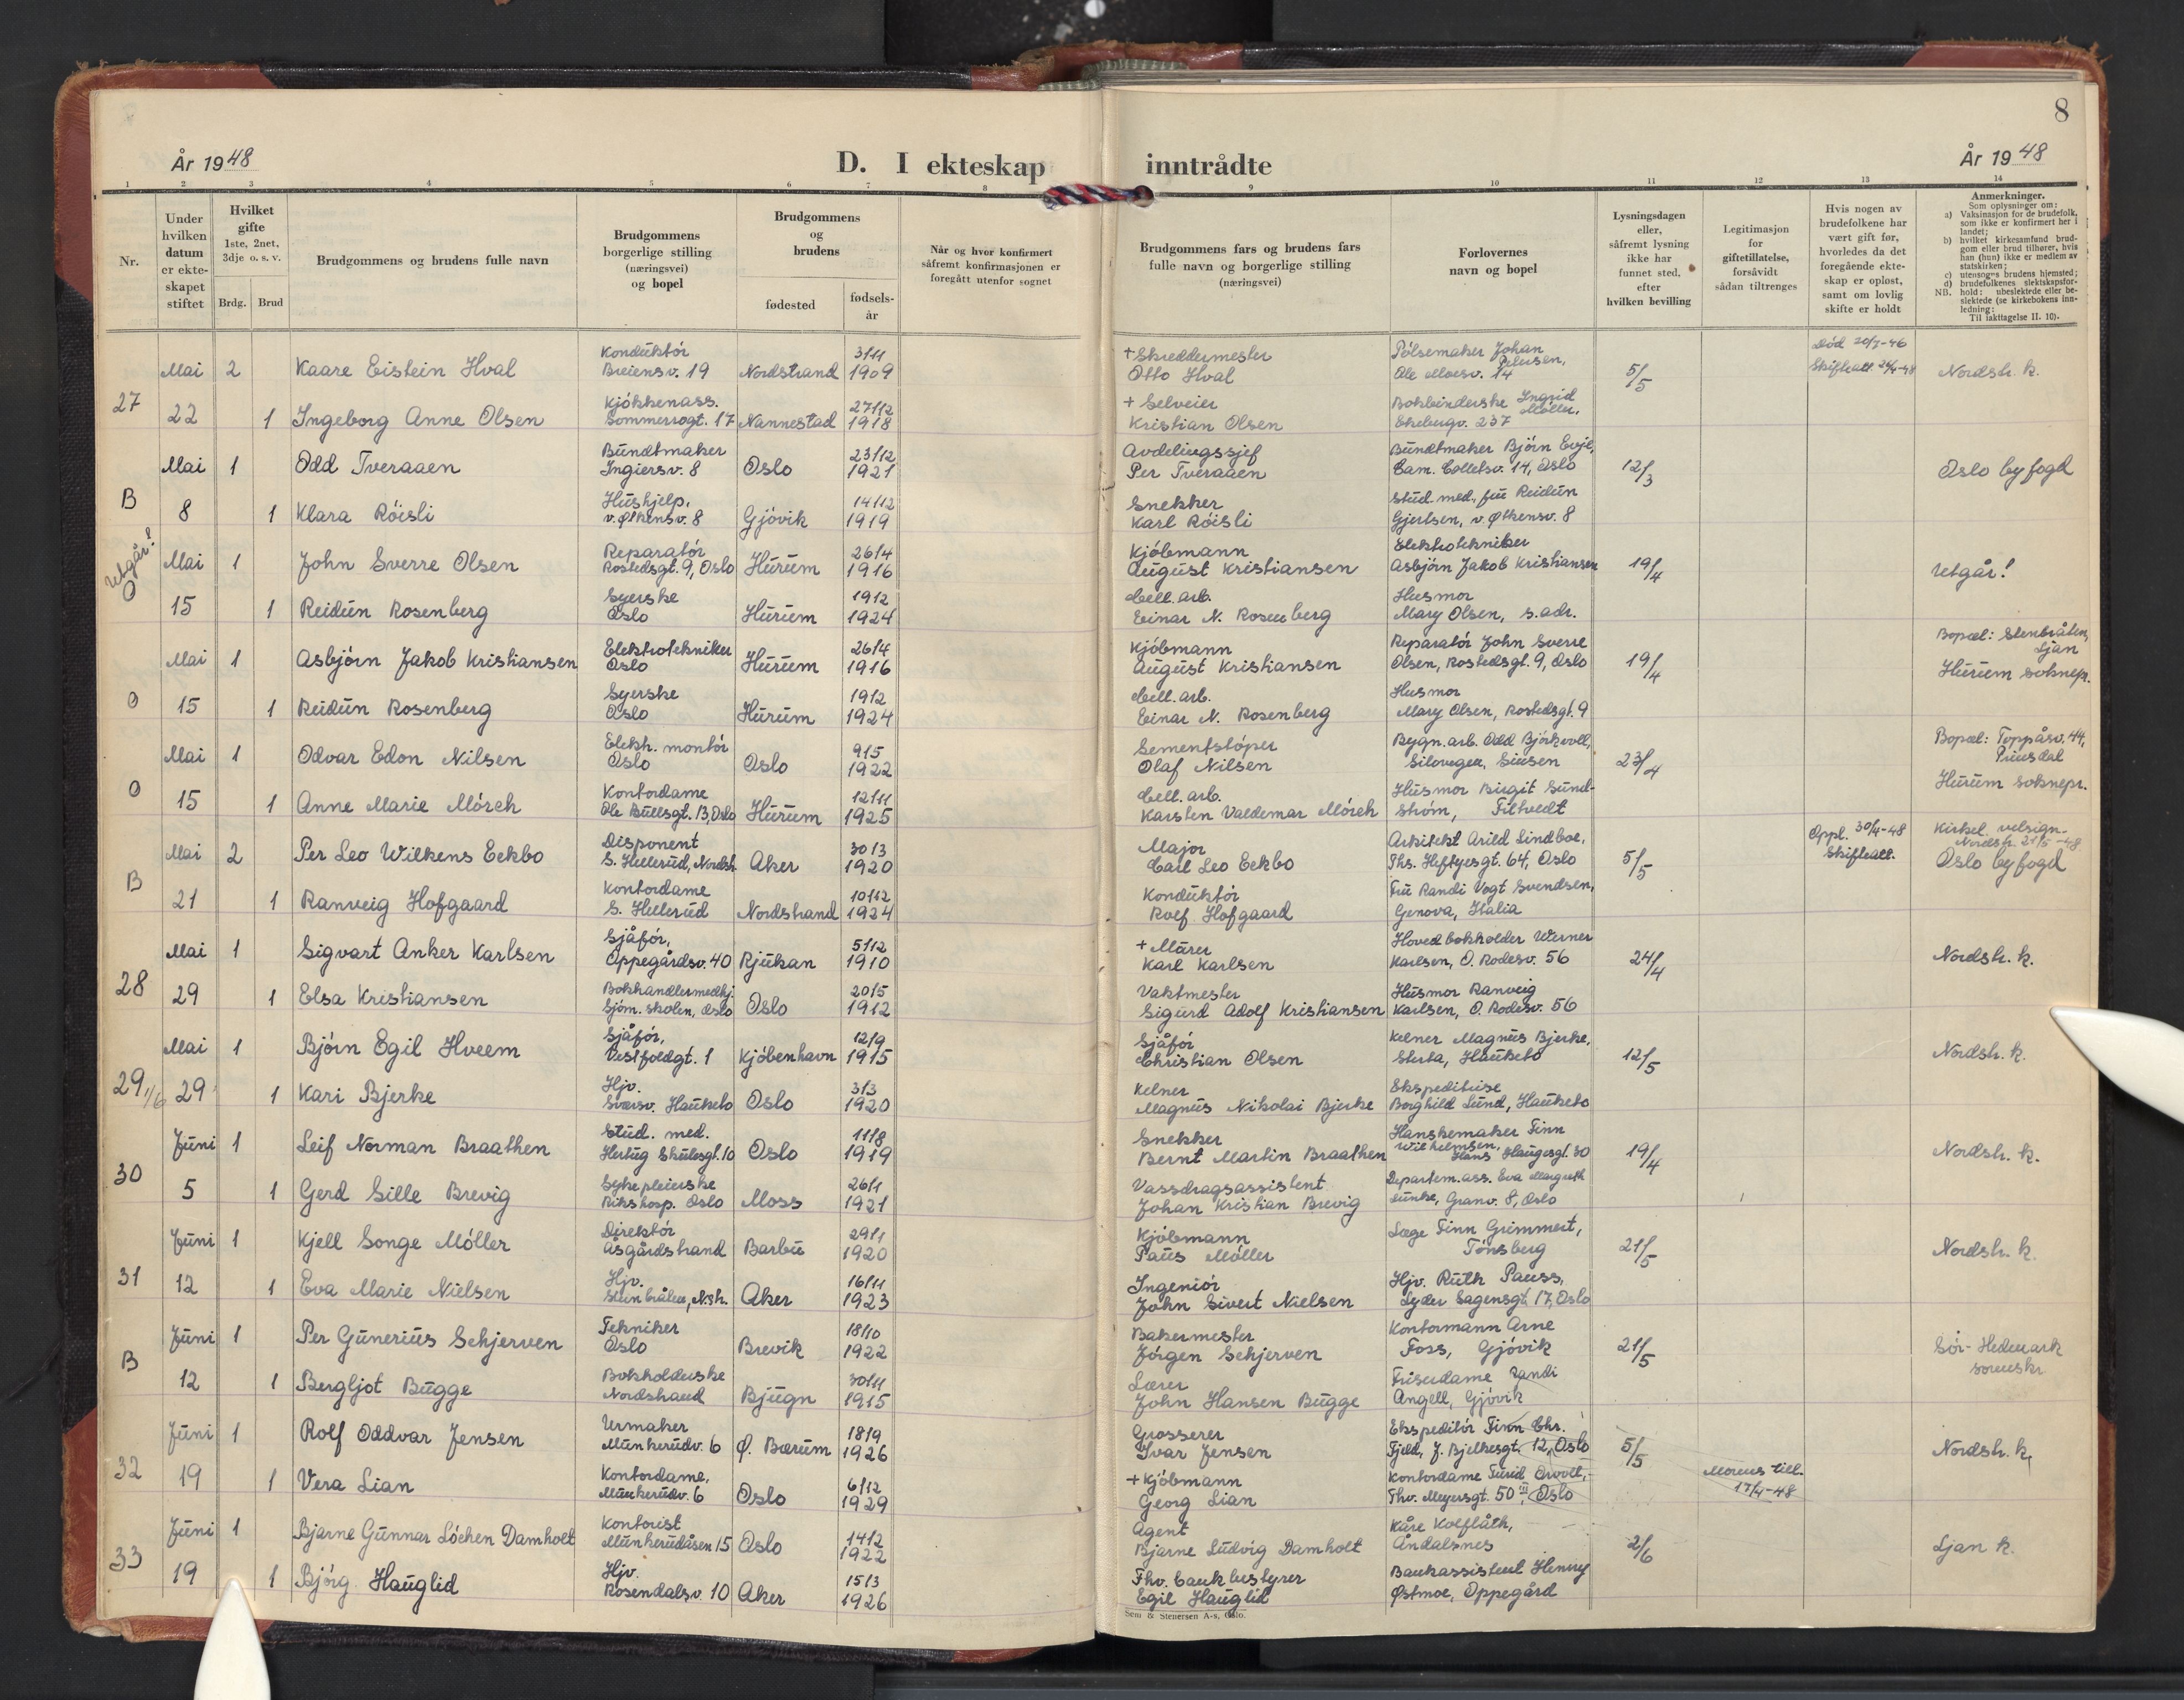 8
År 1948
D. I ekteskap inntrådte
År 1948
1 2 3 4 5 6 7 8 9 10 11 12 13 14
Nr.
Under hvilken datum er ekteskapet stiftet
Hvilket gifte 1ste, 2net, 3dje o. s. v.
Brdg. Brud
Brudgommens og brudens fulle navn
Brudgommens borgerlige stilling (næringsvei) og bopel
Brudgommens og brudens
fødested
fødsels-år
Når og hvor konfirmert såfremt konfirmasjonen er foregått utenfor sognet
Brudgommens fars og brudens fars fulle navn og borgerlige stilling (næringsvei)
Forlovernes navn og bopel
Lysningsdagen eller, såfremt lysning ikke har funnet sted, efter hvilken bevilling
Legitimasjon for giftetillatelse, forsåvidt sådan tiltrenges
Hvis nogen av brudefolkene har vært gift før, hvorledes da det foregående ekteskap er opløst, samt om lovlig skifte er holdt
Anmerkninger.
Som oplysninger om:
a) Vaksinasjon for de brudefolk, som ikke er konfirmert her i landet;
b) hvilket kirkesamfund brudgom eller brud tilhører, hvis han (hun) ikke er medlem av statskirken;
c) utensogns brudens hjemsted;
d) brudefolkenes slektskapsforhold: ubeslektede eller beslektede (se kirkebokens innledning:
NB. Til iakttagelse II. 10).
27 Mai 2 Kaare Eistein Hval Konduktör Breiensv. 19 Nordstrand 3/11 1909 + Skreddermester Otto Hval Pölsemaker Johan Petersen, Ole Moesv. 14 5/5 Skifteatt. 24/4-48 Nordstr. k.
22 1 Ingeborg Anne Olsen Kjökkenass. Sommerrogt. 17 Nannestad 27/12 1918 + Selveier Kristian Olsen Bokbinderske Ingrid Möller, Ekebergv. 237
B Mai 1 Odd Tveraaen Bundtmaker Ingiersv. 8 Oslo 23/12 1921 Avdelingssjef Per Tveraaen Bundtmaker Björn Evje, Cam. Colletsv. 14, Oslo 12/3 Oslo byfogd
8 1 Klara Röisli Hushjelp, v. Øtkensv. 8 Gjövik 14/12 1919 Snekker Karl Röisli Stud. med. fru Reidun Gjertsen, v. Øtkensv. 8
Utgår! O Mai 1 John Sverre Olsen Reparatör Rostedsgt. 9, Oslo Hurum 26/4 1916 Kjöbmann August Kristiansen Elektrotekniker Asbjörn Jakob Kristiansen 19/4 Utgår!
15 1 Reidun Rosenberg Syerske Oslo Hurum 19/2 1924 Cell. arb. Einar N. Rosenberg Husmor Mary Olsen, s. adr.
O Mai 1 Asbjörn Jakob Kristiansen Elektrotekniker Oslo Hurum 26/4 1916 Kjöbmann August Kristiansen Reparatör John Sverre Olsen, Rostedsgt. 9, Oslo 19/4 Bopæl: Stenbråten, Ljan Hurum soknepr.
15 1 Reidun Rosenberg Syerske Oslo Hurum 19/2 1924 Cell. arb. Einar N. Rosenberg Husmor Mary Olsen, Rostedsgt. 9
O Mai 1 Odvar Edon Nilsen Elektr. montör Oslo Oslo 9/5 1922 Sementstöper Olaf Nilsen Bygn. arb. Odd Björkvoll, Siloveien, Sinsen 23/4 Bopæl: Toppåsv. 44, Prinsdal Hurum soknepr.
15 1 Anne Marie Mörch Kontordame Ole Bullsgt. 13, Oslo Hurum 12/11 1925 Cell. arb. Karsten Valdemar Mörch Husmor Birgit Sundström, Filtvedt
B Mai 2 Per Leo Wilkens Eckbo Disponent S. Hellerud, Nordstr. Aker 30/3 1920 Major Carl Leo Eckbo Arkitekt Arild Lindboe, Ths. Heftyesgt. 64, Oslo 5/5 Oppl. 30/4-48 Skifteatt. Kirkel. velsign. Nordstr. 21/5-48 Oslo byfogd
21 1 Ranveig Hofgaard Kontordame S. Hellerud Nordstrand 10/12 1924 Konduktör Rolf Hofgaard Fru Randi Vogt Svendsen, Genova, Italia
28 Mai 1 Sigvart Anker Karlsen Sjåför, Oppegårdsv. 40 Rjukan 5/12 1910 + Murer Karl Karlsen Hovedbokholder Werner Karlsen, O. Rodesv. 56 24/4 Nordstr. k.
29 1 Elsa Kristiansen Bokhandlermedhj. Sjöm. skolen, Oslo Oslo 20/5 1912 Vaktmester Sigurd Adolf Kristiansen Husmor Ranveig Karlsen, O. Rodesv. 56
29 1/6 Mai 1 Björn Egil Hveem Sjåför, Vestfoldgt. 1 Kjöbenhavn 12/9 1915 Sjåför Christian Olsen Kelner Magnus Bjerke, Hauketo 12/5 Nordstr. k.
29 1 Kari Bjerke Hjv. Sværsv. Hauketo Oslo 3/3 1920 Kelner Magnus Nikolai Bjerke Ekspeditrise Borghild Lund, Hauketo
30 Juni 1 Leif Norman Braathen Stud. med. Hertug Skulesgt. 10 Oslo 11/8 1919 Snekker Bernt Martin Braathen Hanskemaker Finn Wilhelmsen, Hans Haugesgt. 30 19/4 Nordstr. k.
5 1 Gerd Sille Brevig Sykepleierske Rikshosp. Oslo Moss 26/1 1921 Vassdragsassistent Johan Kristian Brevig Departem. ass. Eva Margreth Lunke, Granv. 8, Oslo
31 Juni 1 Kjell Songe Möller Direktör Åsgårdstrand Barbu 29/1 1920 Kjöbmann Paus Möller Læge Finn Grimmert, Tönsberg 21/5 Nordstr. k.
12 1 Eva Marie Nielsen Hjv. Stenbråten, N.str. Aker 16/11 1923 Ingeniör John Sivert Nielsen Hjv. Ruth Pauss, Lyder Sagensgt. 17, Oslo
B Juni 1 Per Gunerius Schjerven Tekniker Oslo Brevik 18/10 1922 Bakermester Jörgen Schjerven Kontormann Arne Foss, Gjövik 21/5 Sör-Hedmark sorenskr.
12 1 Bergljot Bugge Bokholderske Nordstrand Bjugn 30/11 1915 Lærer John Hansen Bugge Friserdame Randi Angell, Gjövik
32 Juni 1 Rolf Oddvar Jensen Urmaker Munkerudv. 6 Ø. Bærum 18/9 1926 Grosserer Ivar Jensen Ekspeditör Finn Chr. Fjeld, J. Bjelkesgt. 12, Oslo 5/5 Nordstr. k.
19 1 Vera Lian Kontordame, Munkerudv. 6 Oslo 6/12 1929 + Kjöbmann Georg Lian Kontordame Turid Arvoll, Thv. Meyersgt. 50 III, Oslo Morens till. 17/4-48
33 Juni 1 Bjarne Gunnar Löchen Damholt Kontorist Munkerudåsen 15 Oslo 14/2 1922 Agent Bjarne Ludvig Damholt Kåre Kolflåth, Åndalsnes 2/6 Ljan k.
19 1 Björg Hauglid Hjv. Rosendalsv. 10 Aker 15/3 1926 Fhv. bankbestyrer Egil Hauglid Bankassistent Henry Østmoe, Oppegård
Sem & Stenersen A-s, Oslo.